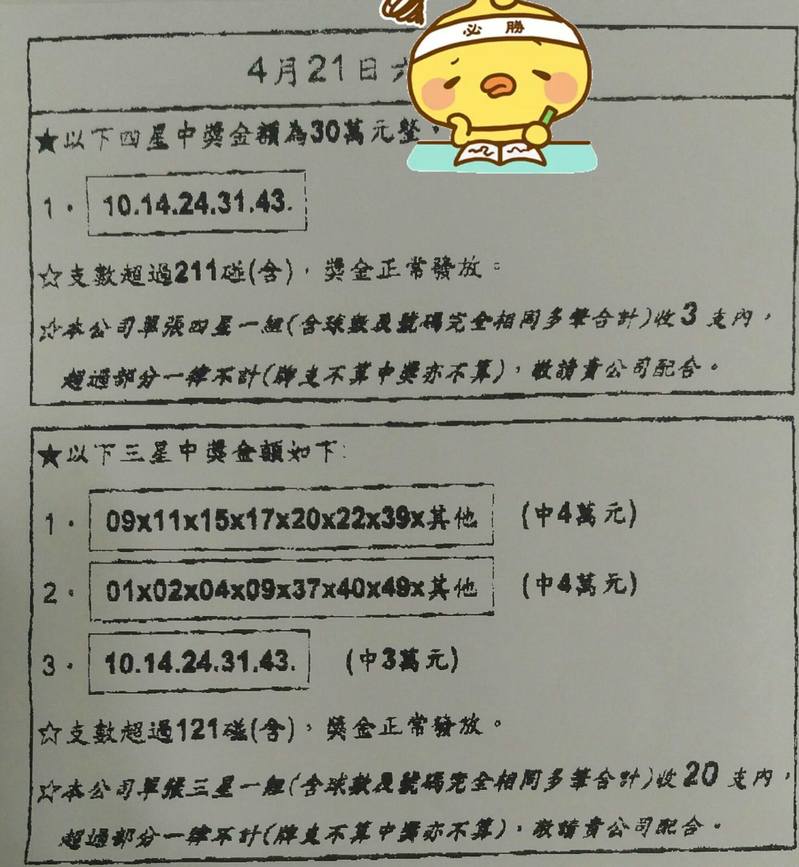 必勝
4月21日六
★以下四星中獎金額為30萬元整,
1. 10.14.24.31.43.
☆支數超過211碰(含),獎金正常發放。
☆本公司單張四星一組(含球數及號碼完全相同多筆合計)收3支內,
超過部分一律不計(牌支不算中獎亦不算),敬請貴公司配合。
★以下三星中獎金額如下:
1. 09x11x15x17x20x22x39x其他 (中4萬元)
2. 01x02x04x09x37x40x49x其他 (中4萬元)
3. 10.14.24.31.43. (中3萬元)
☆支數超過121碰(含),獎金正常發放。
☆本公司單張三星一組(含球數及號碼完全相同多筆合計)收20支內,
超過部分一律不計(牌支不算中獎亦不算),敬請貴公司配合。